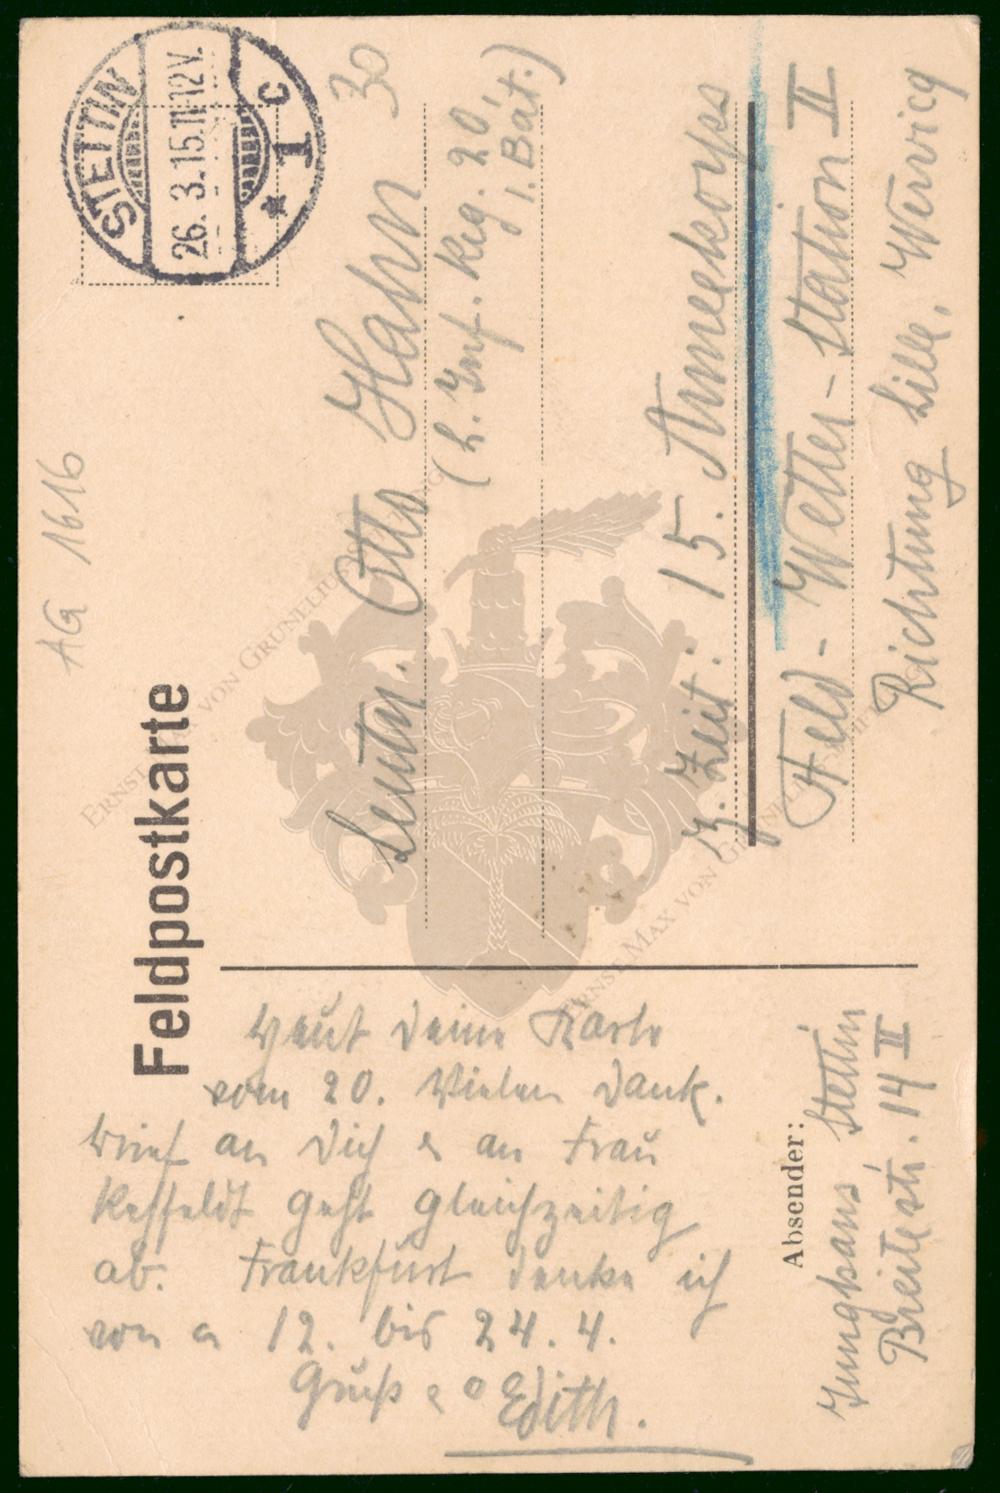 Feldpostkarte
STETTIN
26. 3. 15. 11-12 V.
* 1 c
AG 1616
30
Leutn. Otto Hahn
(L. Inf. Reg. 20,
1. Bat.)
z. Zeit: 15. Armeekorps
Feld-Wetter-Station II
Richtung Lille, Wervicq
Heut Deine Karte
vom 20. Vielen Dank.
Brief an Dich & an Frau
geht gleichzeitig
ab. Frankfurt denke ich
von 12. bis 24. 4.
Gruß
Edith.
Absender:
Junghans, Stettin
Breitestr. 14 II
ERNST MAX VON GRUNELIUS-STIFTUNG
ERNST MAX VON GRUNELIUS-STIFTUNG